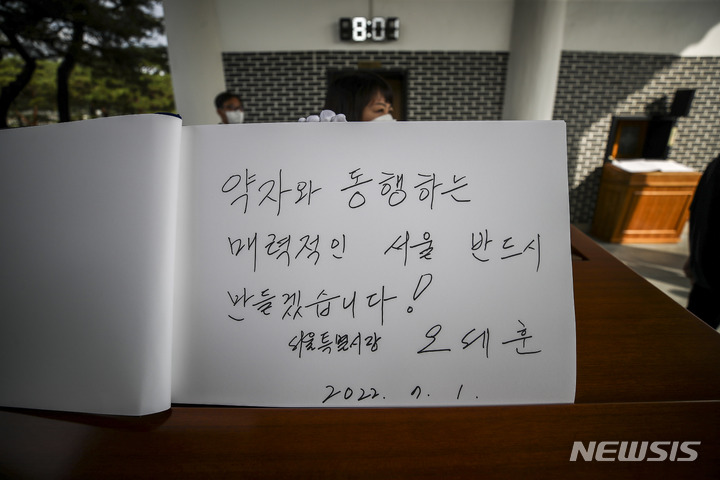 8:03
약자와 동행하는
매력적인 서울 반드시
만들겠습니다!
서울특별시장 오세훈
2022. 7. 1.
NEWSIS